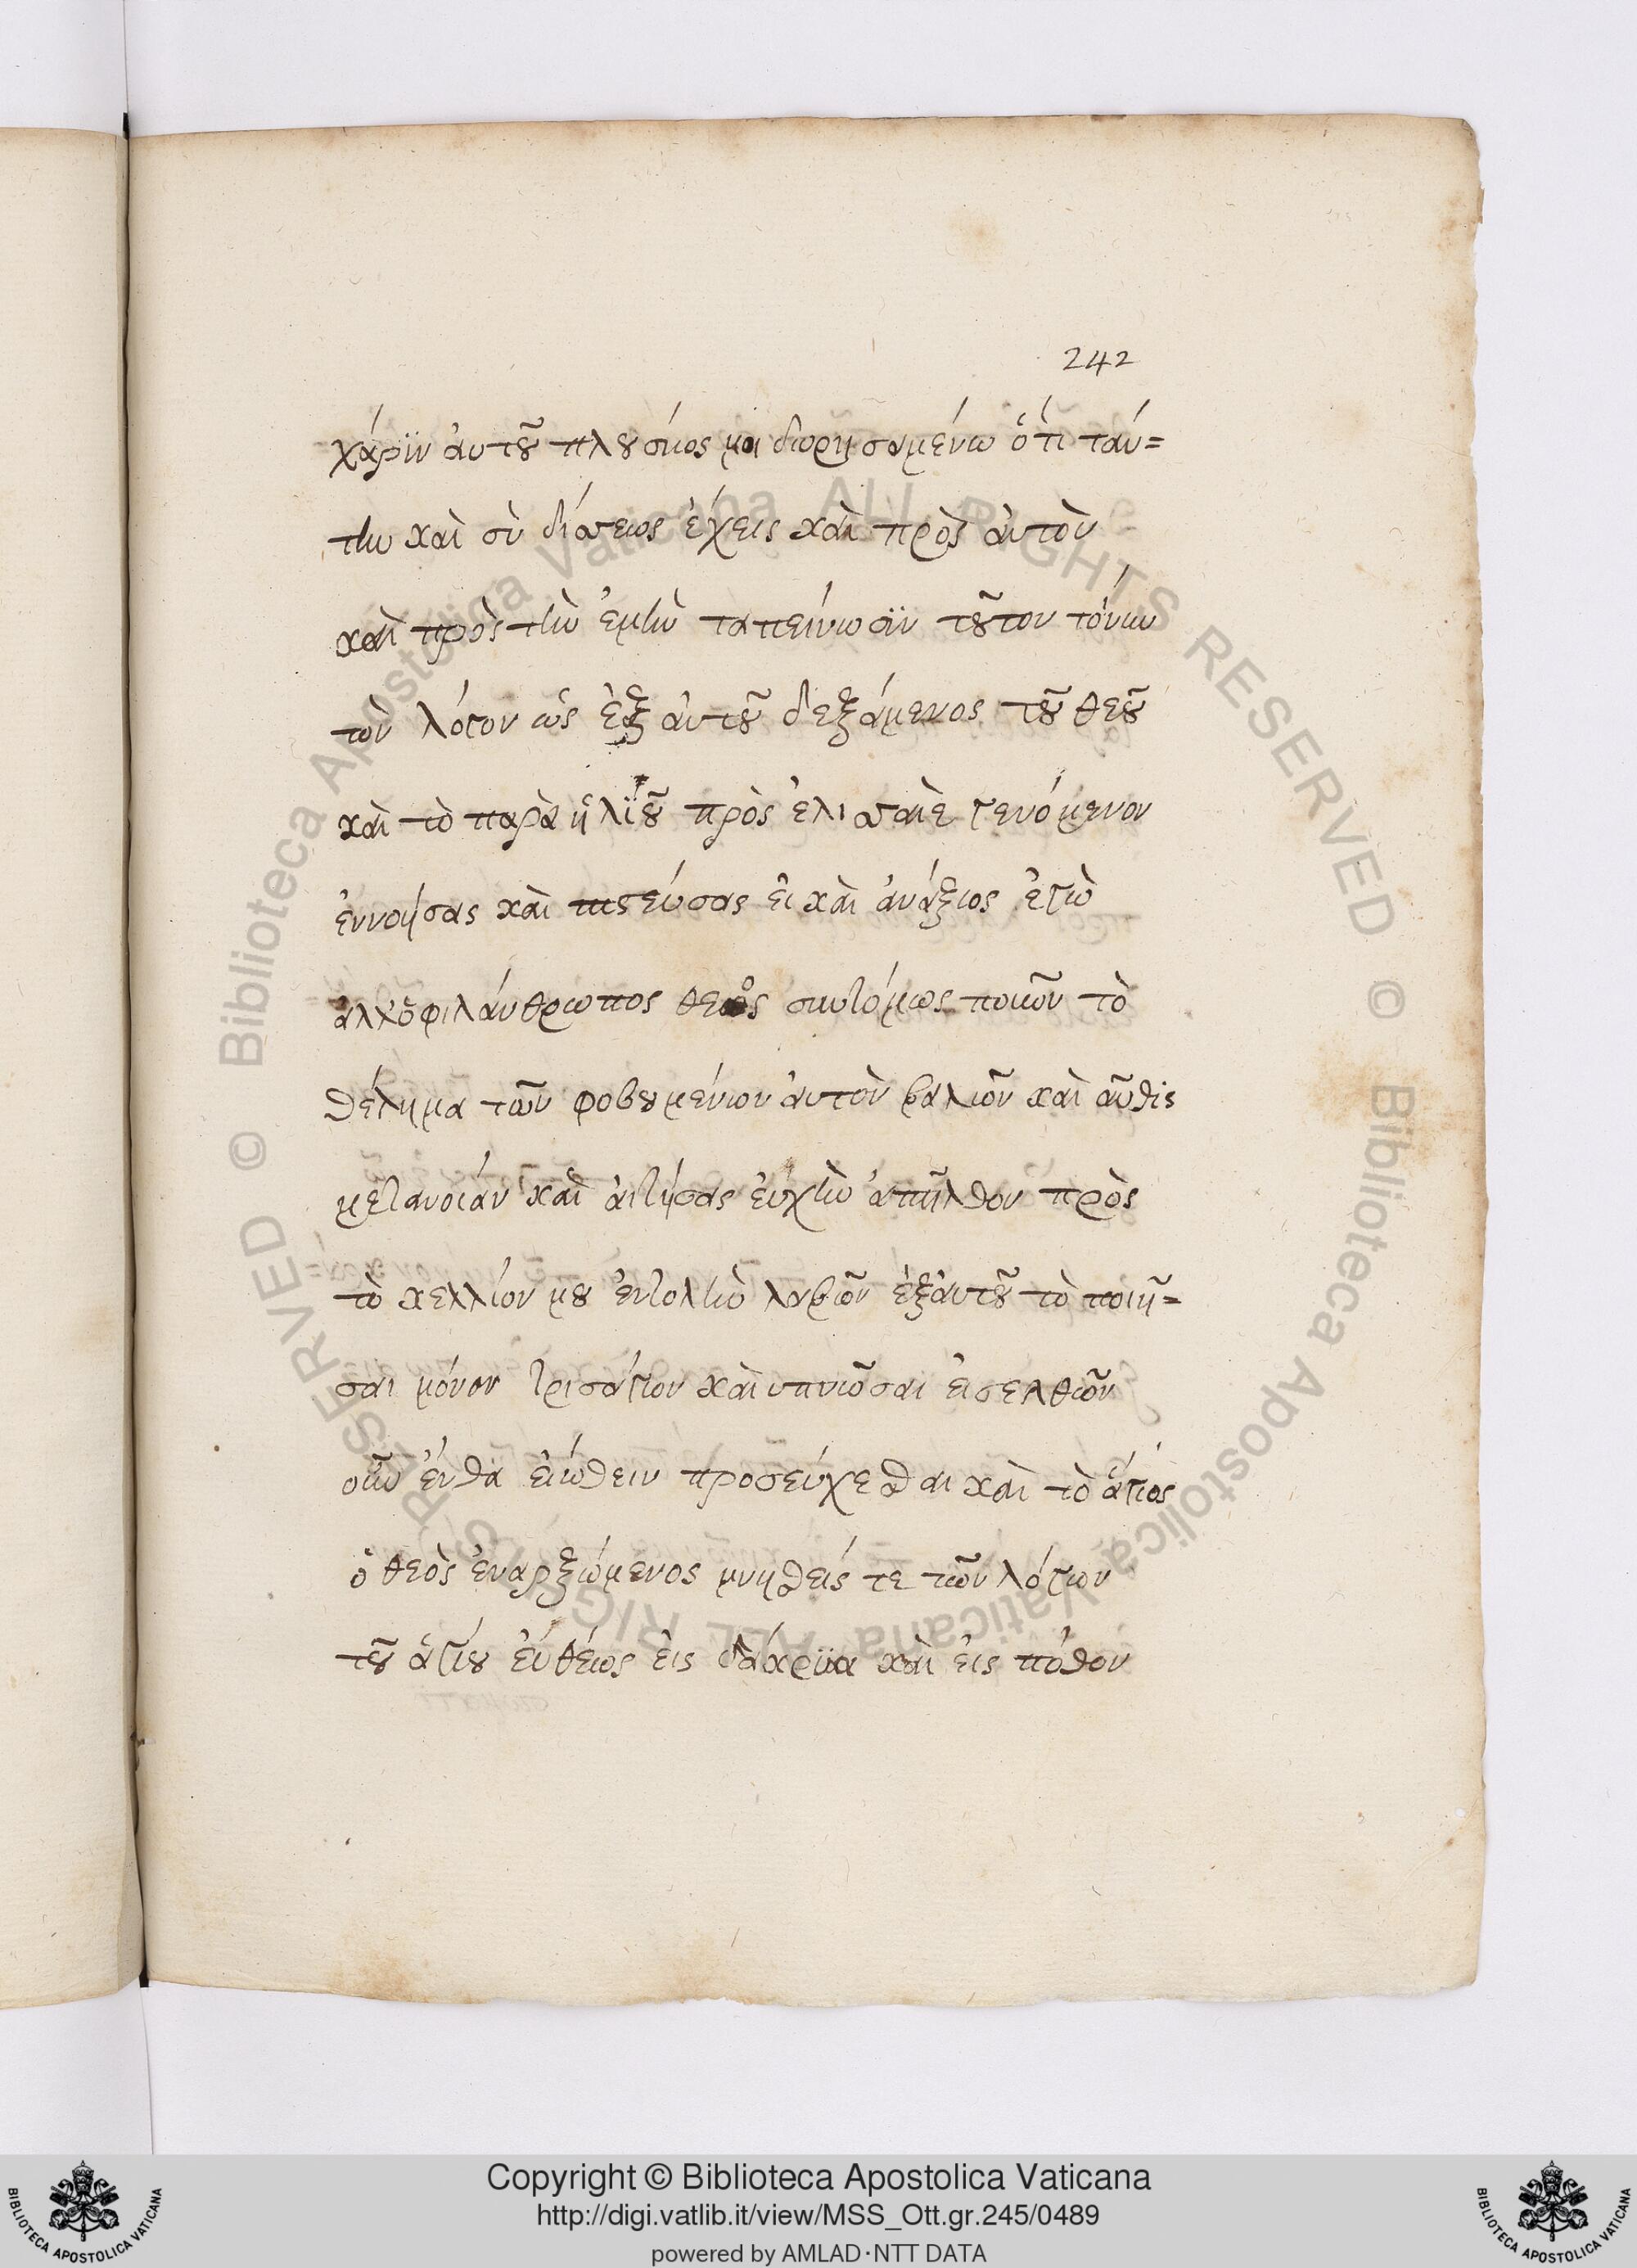 242
χάρϊν ἀυτοῦ πλουσίως μοι δωρησαμένω ὅτι ταύ=
την καὶ σὺ διάσεως ἔχεις καὶ πρὸς ἀυτὸν
καὶ πρὸς τὴν ἐμὴν ταπείνωσϊν τοῦτον τόνυν
τὸν λόγον ὡς ἐξ ἀυτοῦ δεξάμενος τοῦ θεοῦ
καὶ τὸ παρὰ ἡλϊοῦ πρὸς ἐλισαῖε γενόμενον
ἐννοήσας καὶ πιστεύσας εἰ καὶ ἀνάξιος ἐγὼ
ἀλλ' ὁ φιλάνθρωπος θεὸς συντόμως ποιῶν τὸ
θέλημα τῶν φοβουμένων ἀυτὸν βαλὼν καὶ αὖθις
μετανοιάν καὶ ἀιτήσας ἐυχὴν ἀπῆλθον πρὸς
τὸ κελλίον μου ἐντολὴν λαβὼν ἐξ ἀυτοῦ τὸ ποιῆ=
σαι μόνον τρισάγιον καὶ υπνῶσαι ἐισελθὼν
οὖν ἔνθα ἐιώθειν προσεύχεσθαι καὶ τὸ ἅγιος
ὁ θεὸς ἐναρξώμενος μνησθείς τε τῶν λόγων
τοῦ ἁγίου ἐυθέως ἐις δάκρϋα καὶ ἐις πόθον
Copyright © Biblioteca Apostolica Vaticana
http://digi.vatlib.it/view/MSS_Ott.gr.245/0489
powered by AMLAD·NTT DATA
BIBLIOTECA APOSTOLICA VATICANA
BIBLIOTECA APOSTOLICA VATICANA
© Biblioteca Apostolica Vaticana ALL RIGHTS RESERVED
© Biblioteca Apostolica Vaticana ALL RIGHTS RESERVED